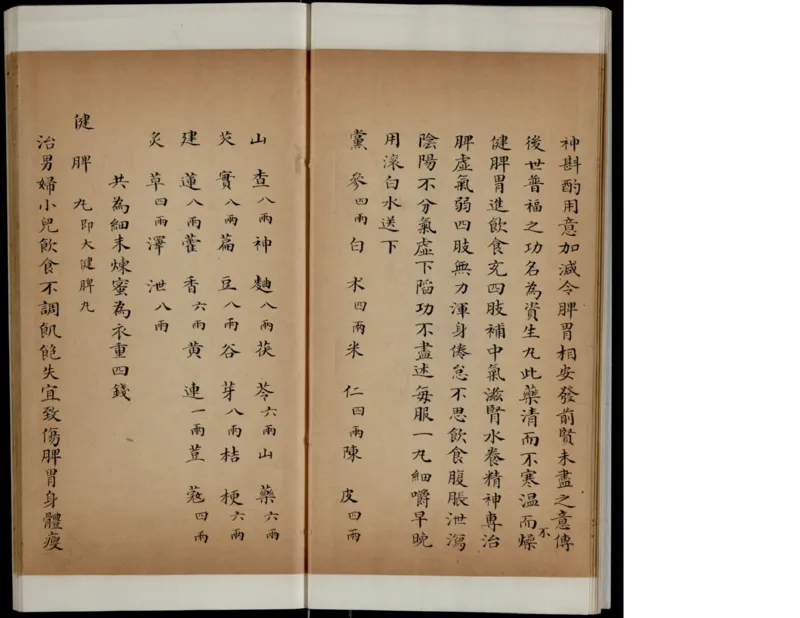 神斟酌用意加減令脾胃相安發前賢未盡之意傳
後世普福之功名為資生丸此藥清而不寒温而不燥
健脾胃進飲食充四肢補中氣滋腎水養精神專治
脾虛氣弱四肢無力渾身倦怠不思飲食腹脹泄瀉
陰陽不分氣虛下陷功不盡述每服一丸細嚼早晚
用滾白水送下
黨參四兩白朮四兩米仁四兩陳皮四兩
山查八兩神麯八兩茯苓六兩山藥六兩
芡實八兩萹豆八兩谷芽八兩桔梗六兩
建蓮八兩藿香六兩黃連一兩荳蔻四兩
炙草四兩澤泄八兩
共為細末煉蜜為衣重四錢
健脾丸即大健脾丸
治男婦小兒飲食不調飢飽失宜致傷脾胃身體瘦